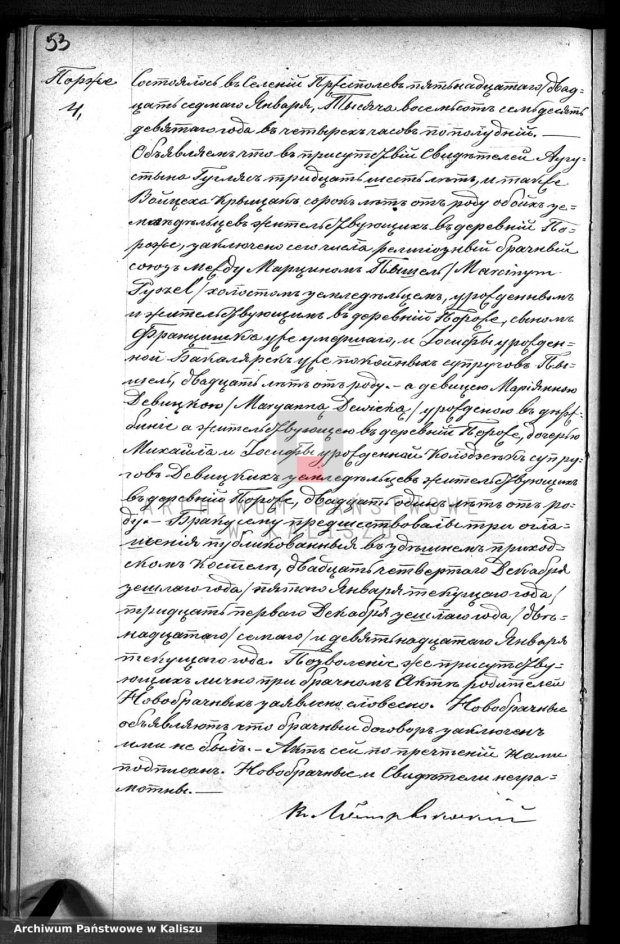 53
Пороже
4,
Состоялось въ Селеніи Пржесполевъ пятьнадцатаго/двад-
цать седмаго Января, Тысяча восемьсотъ семьдесятъ
девятаго года въ четырехъ часовъ по полудній. —
Объявляемъ что въ присутствій Свидѣтелей Авгу-
стына тридцать шесть лѣтъ, и также
Войцеха Крыщакъ сорокъ лѣтъ отъ роду обоихъ зе-
мледѣльцевъ жительствующихъ въ деревній По-
роже, заключено сего числа религіозный брачный
союзъ между Марциномъ Пышель/Marcinym
Pyszel/холостомъ земледѣльцемъ, урожденнымъ
и жительствующимъ въ деревній Пороже, сыномъ
Францишка уже умершаго, и Іосифы урожден-
ной Бакалярекъ уже покойныхъ супруговъ Пы-
шель, двадцать лѣтъ отъ роду. — а девицею Маріянною
Девицкою/Maryanna Dewicka/урожденою въ
а жительствующею въ деревній Пороже, дочерью
Михаила и Іосифы урожденной Колодзекъ супру-
говъ Девицкихъ земледѣльцевъ жительствующихъ
въ деревній Пороже, двадцать одинъ лѣтъ отъ ро-
ду. — Браку сему предшествовалы три огла-
шенія публикованныя въ здѣшнемъ приход-
скомъ Костелѣ, двадцать четвертаго Декабря
зешлаго года/пятаго Января текущаго года/
тридцать перваго Декабря зешлаго года/двѣ-
надцатаго/семаго/и девятьнадцатаго Января
текущаго года. Позволеніе же присутству-
ющихъ лично при брачномъ Актѣ родителей
Новобрачныхъ заявлено словесно. Новобрачные
объявляютъ что брачный договоръ заключенъ
ими не былъ. — Актъ сей по прочтеній нами
подписанъ. Новобрачные и Свидѣтели негра-
мотны. —
ARCHIWUM PAŃSTWOWE
W KALISZU
Archiwum Państwowe w Kaliszu